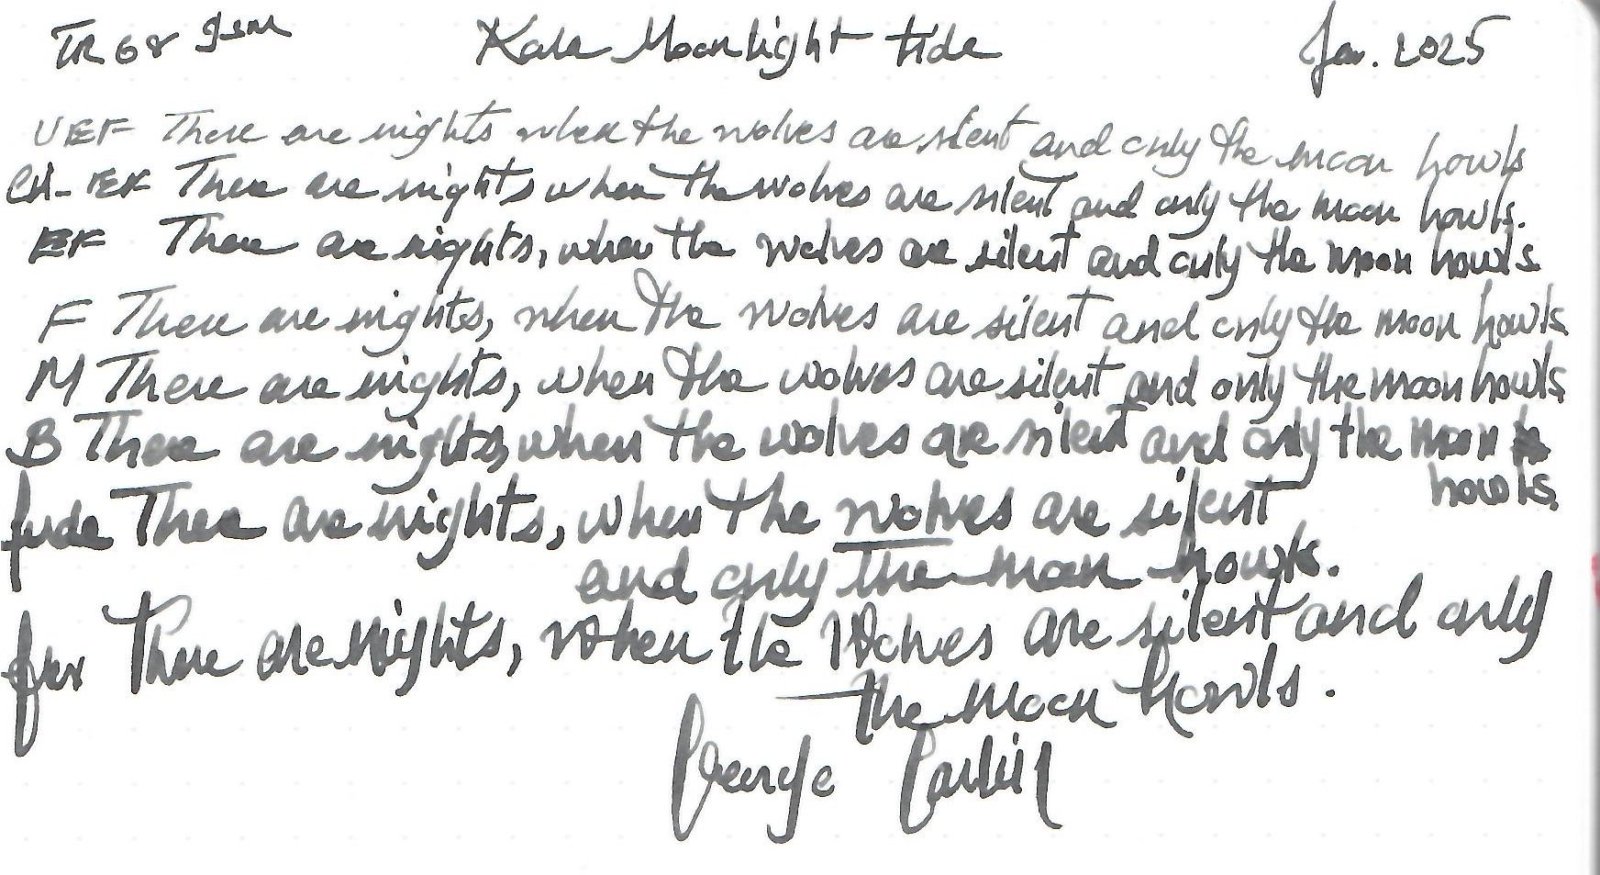 TR 68 gsm Kala Moonlight tide Jan. 2025
UEF There are nights when the wolves are silent and only the moon howls
CH-EF There are nights when the wolves are silent and only the moon howls.
EF There are nights, when the wolves are silent and only the moon howls
F There are nights, when the wolves are silent and only the moon howls
M There are nights, when the wolves are silent and only the moon howls
B There are nights, when the wolves are silent and only the moon
howls.
fude There are nights, when the wolves are silent
and only the moon howls.
There are nights, when the Wolves are silent and only
the Moon Howls.
George Carlin